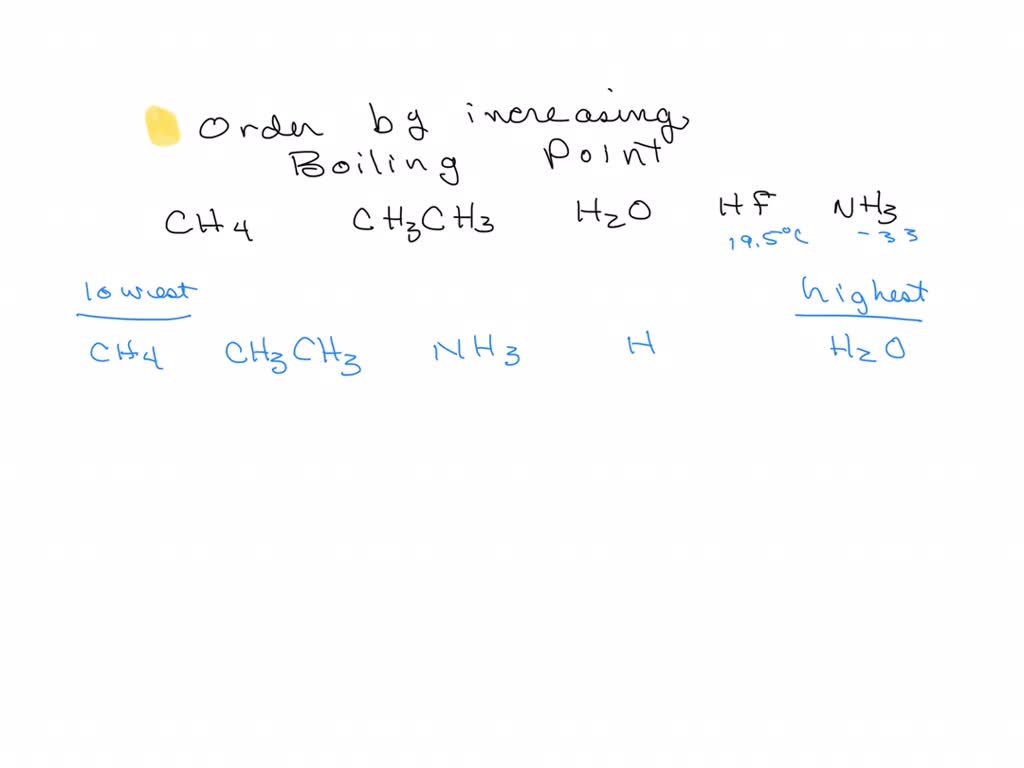 Order by increasing
Boiling Point
CH4 CH3CH3 H2O HF NH3
19.5°C -33
lowest highest
CH4 CH3CH3 NH3 H H2O